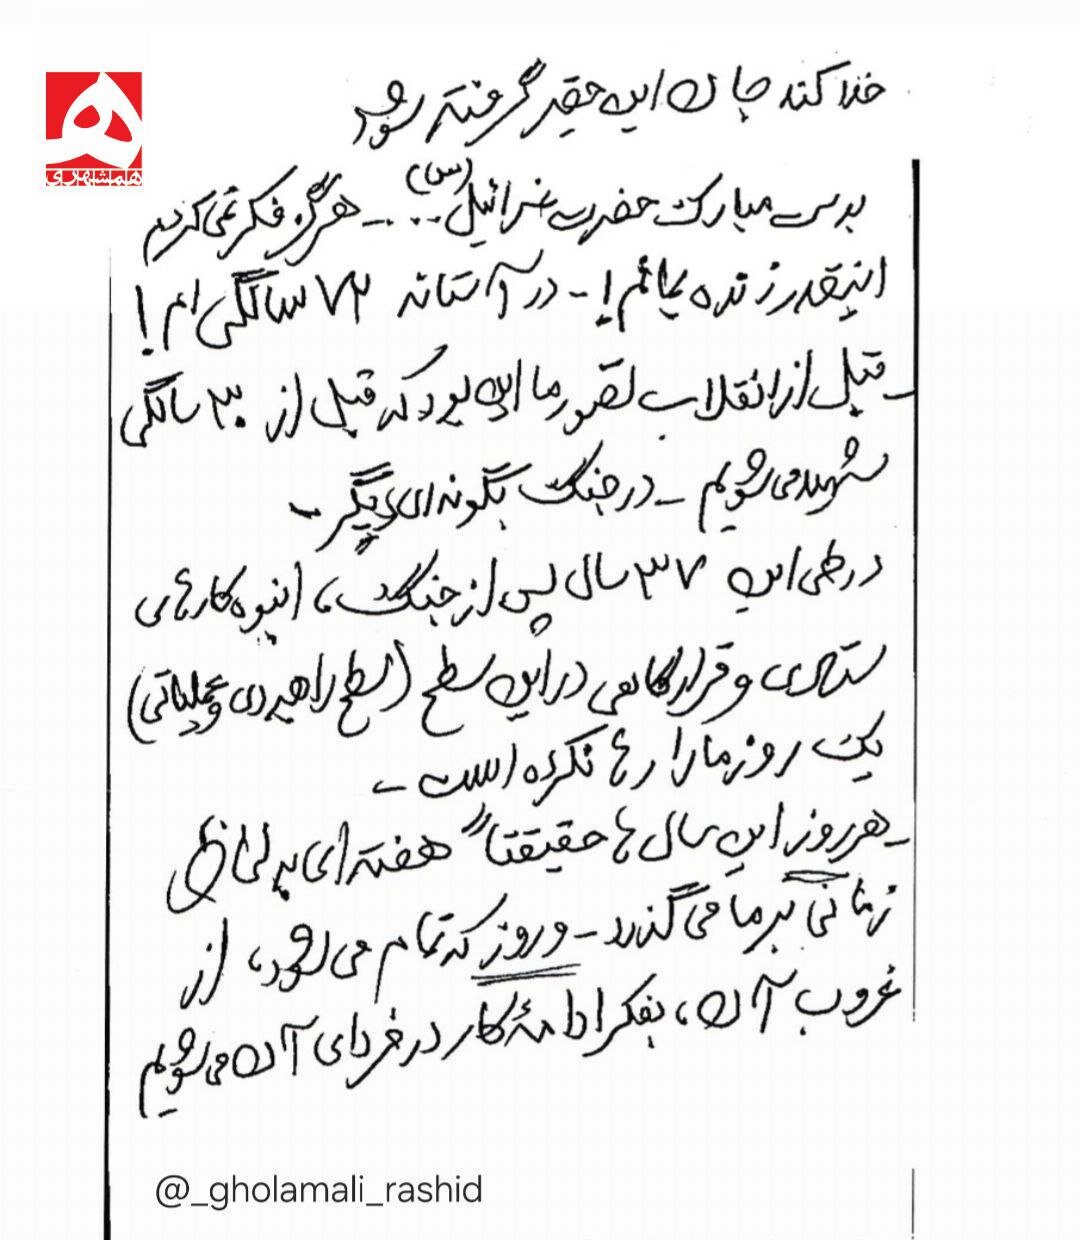 همشهری
خدا کند جان این حقیر گرفته شود
بدست مبارک حضرت عزرائیل (س) ... ـ هرگز فکر نمی‌کردیم
اینقدر زنده بمانم! ـ در آستانه ۷۲ سالگی ام!
ـ قبل از انقلاب تصور ما این بود که قبل از ۳۰ سالگی
شهید می‌شویم ـ در جنگ بگونه‌ای دیگر ـ
در طی این ۳۷ سال پس از جنگ، انبوه کارهای
ستادی و قرارگاهی در این سطح (سطح راهبردی و عملیاتی)
یک روز ما را رها نکرده است ـ
ـ هر روز این سال ها حقیقتاً هفته ای به لحاظ
زمانی بر ما می گذرد ـ و روز که تمام می شود، از
غروب آن، بفکر ادامۀ کار در فردای آن می شویم
@_gholamali_rashid